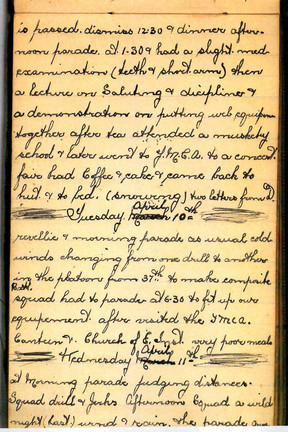 is passed. dismiss 12.30 & dinner after-
noon parade. at 1.30 & had a slight med
examination (teeth & short arm) then
a lecture on Saluting & dicipline &
a demonstration on putting web equipmen
together after tea attended a musketry
school & later went to Y.M.C.A. to a concert.
fair had Coffe & cake & came back to
hut. & to bed. (snowing) two letters from
Tuesday March April 10th
revellie & morning parade as usual cold
winds changing from one drill to another
in the platoon from 37th to make composite
squad had to parade at 6.30 to fit up our
equipement. after visited the Y.M.C.A.
Canteen & Church of E. Inst. very poor meals
Wednesday March April 11th
at Morning parade judging distances.
Squad drill & Jerks. Afternoon Squad a wild
night (hart) wind & rain. the parade